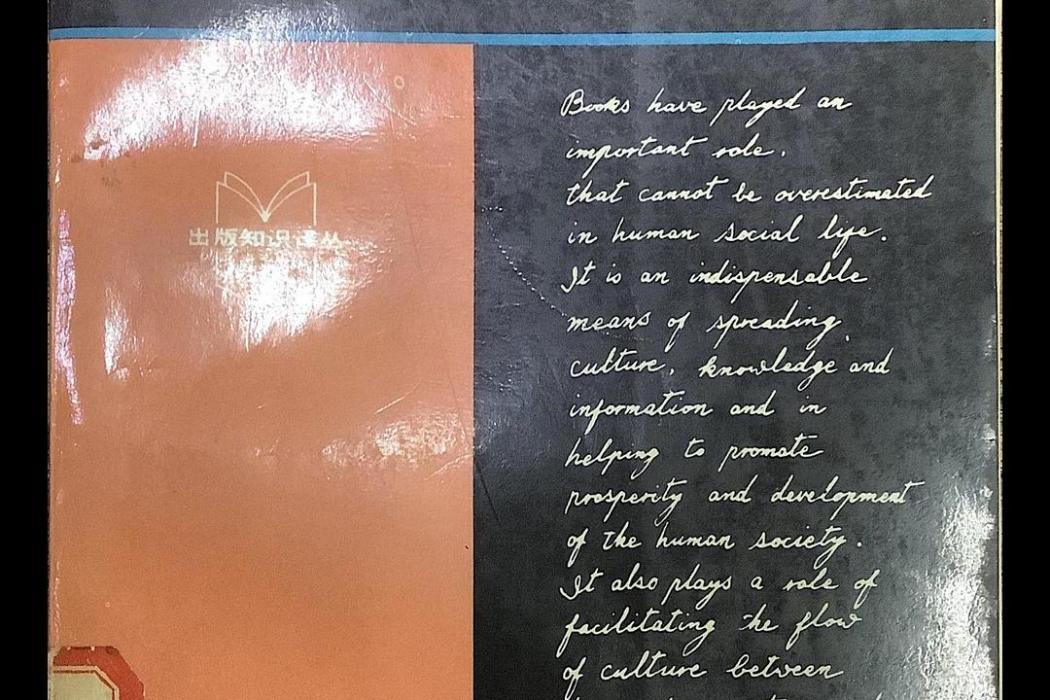 出版知识译丛
Books have played an
important role.
that cannot be overestimated
in human social life.
It is an indispensable
means of spreading
culture, knowledge and
information and in
helping to promote
prosperity and development
of the human society.
It also plays a role of
facilitating the flow
of culture between